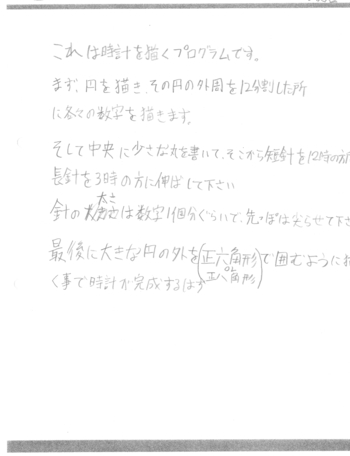 これは時計を描くプログラムです。
まず、円を描き、その円の外周を12分割した所
に各々の数字を描きます。
そして中央に少さな丸を書いて、そこから短針を12時の方
長針を3時の方に伸ばして下さい
太さ
針の は数字1個分ぐらいで、先っぽは尖らせて下さ
最後に大きな円の外を(正六角形)で囲むように描
正八角形
く事で時計が完成するはず